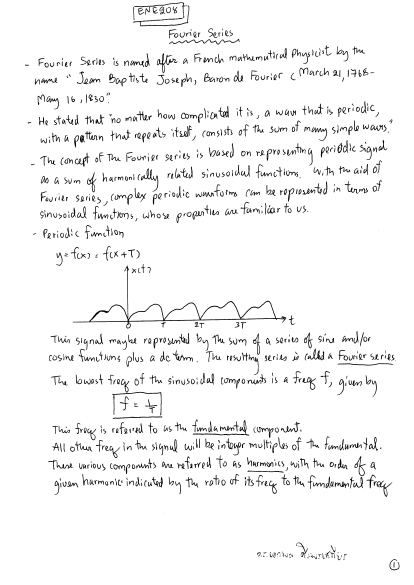 ENE208
Fourier Series
- Fourier Series is named after a French mathematical Physicist by the
name "Jean Baptiste Joseph, Baron de Fourier (March 21, 1768-
May 16, 1830".
- He stated "no matter how complicated it is, a wave that is periodic,
with a pattern that repeats itself, consists of the sum of many simple waves."
- The concept of the Fourier series is based on representing periodic signal
as a sum of harmonically related sinusoidal functions. With the aid of
Fourier series, complex periodic waveforms can be represented in terms of
sinusoidal functions, whose properties are familiar to us.
- Periodic function
y = f(x) = f(x+T)
x(t)
0 T 2T 3T t
This signal maybe represented by the sum of a series of sine and/or
cosine functions plus a dc term. The resulting series is called a Fourier series
The lowest freq of the sinusoidal components is a freq f, given by
f = 1/T
This freq is referred to as the fundamental component.
All other freq in the signal will be integer multiples of the fundumental.
These various components are referred to as harmonics, with the order of a
given harmonic indicated by the ratio of its freq to the fundamental freq
1